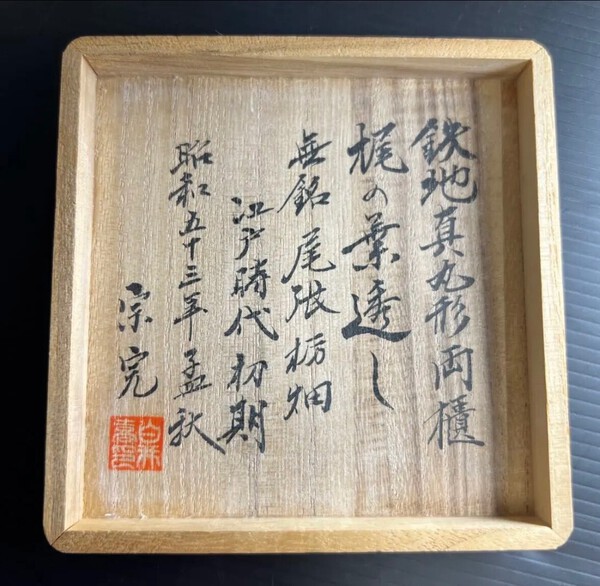 鉄地真丸形両櫃
梶の葉透し
無銘尾張栃畑
江戸時代初期
昭和五十三年孟秋
宗完